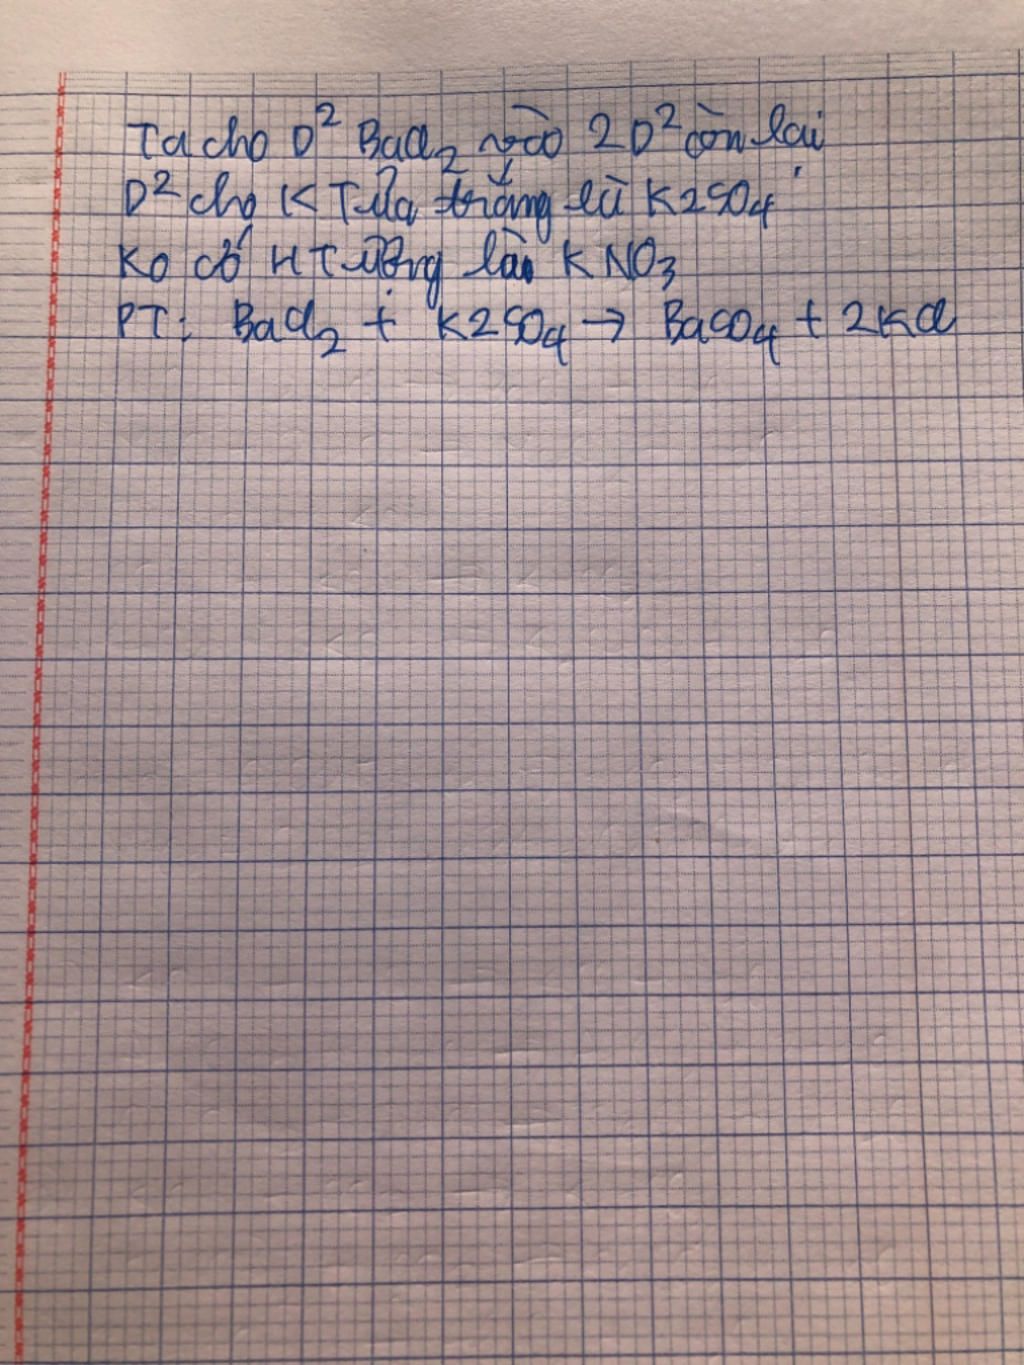 Ta cho D² BaCl₂ vào 2 D² còn lại
D² cho K Tủa trắng là K2SO₄
Ko có H Tượng là KNO₃
PT: BaCl₂ + K2SO₄ → BaSO₄ + 2KCl